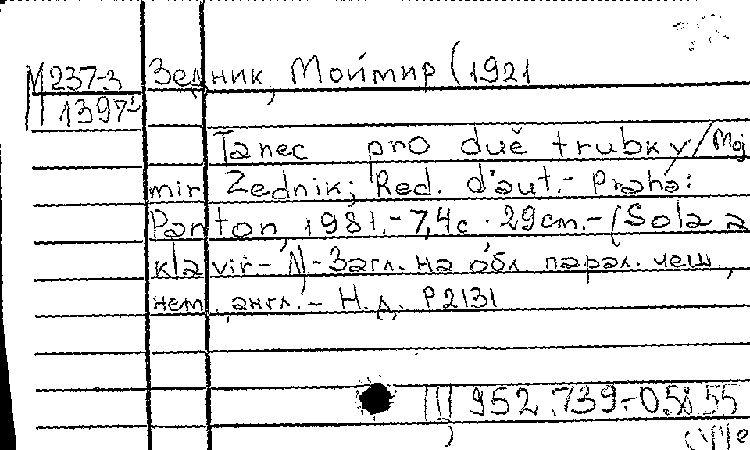 М 237-3 Зедник, Моймир (1921
1397
Tanec pro duě trubky/Moj
mir Zednik; Red. d'aut.- Praha:
Panton, 1981.- 7,4с. 29cm.-(Sola a
klavir- Загл. на обл парал. чеш,
нем., англ.- Н.д. P2131
952.739.-0.58 55